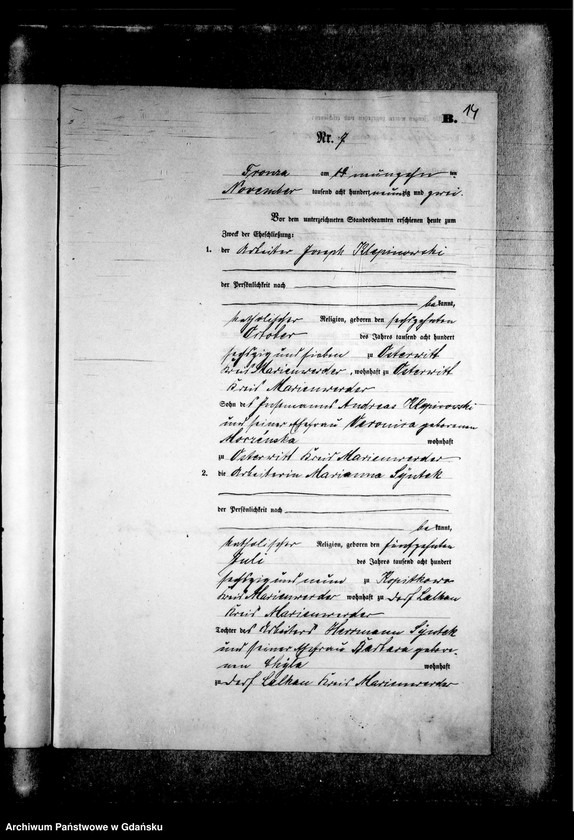 14
B.
Nr. 7
Fronza am neunzehn ten
November tausend acht hundert neunzig und zwei.
Vor dem unterzeichneten Standesbeamten erschienen heute zum
Zweck der Eheschließung:
1. der Arbeiter Joseph Klepinowski
der Persönlichkeit nach
be kannt,
katholischer Religion, geboren den sechszehnten
October des Jahres tausend acht hundert
sechszig und sieben zu Osterwitt
Kreis Marienwerder, wohnhaft zu Osterwitt
Kreis Marienwerder
Sohn des Instmanns Andreas
und seiner Ehefrau Veronica geborenen
wohnhaft
zu Osterwitt Kreis Marienwerder
2. die Arbeiterin Marianna Syntek
der Persönlichkeit nach
be kannt,
katholischer Religion, geboren den fünfzehnten
Juli des Jahres tausend acht hundert
sechszig und neun zu Kopitkowo
Kreis Marienwerder wohnhaft zu Dorf Lalkau
Kreis Marienwerder
Tochter des Arbeiters Herrmann Syntek
und seiner Ehefrau Barbara gebore-
nen wohnhaft
zu Dorf Lalkau Kreis Marienwerder
Archiwum Państwowe w Gdańsku